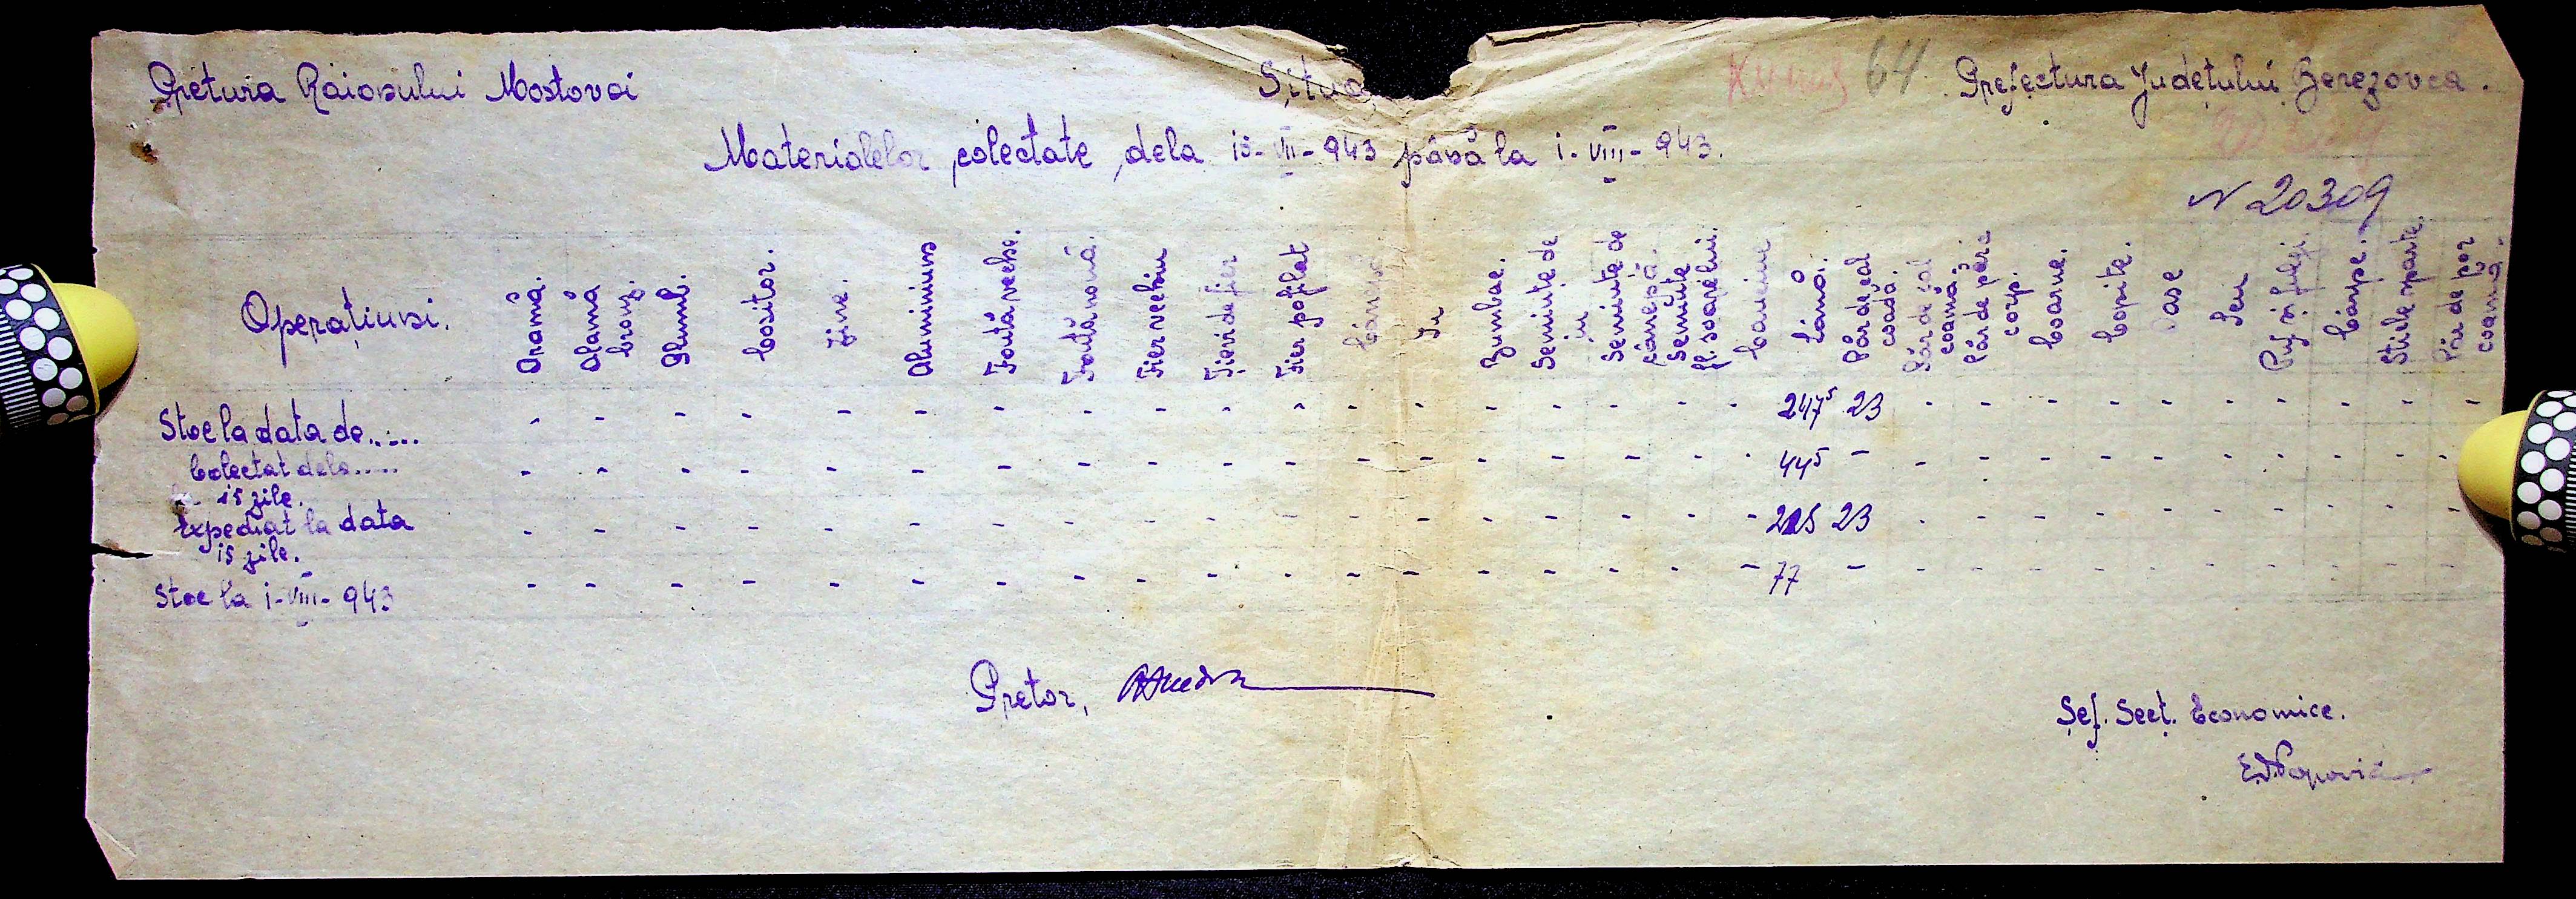 Pretura Raionului Mostovoi
Situa
64
Prefectura Județului Berezovca.
Materialelor colectate dela 15-VII-943 până la 1-VIII-943.
N 20309
Operațiuni.
Aramă.
Alamă bronz.
Plumb.
Cositor.
Zinc.
Aluminium
Fontă veche.
Fontă nouă.
Fier vechiu
Fier profilat
In
Bumbac.
Semințe de in
Semințe de cânepă.
Semințe fl. soarelui.
Lână.
Păr de cal coadă.
Păr de cal coamă.
Păr de pe corp.
Coarne.
Copite.
Oase
Seu
Puf și fulgi.
Cârpe.
Sticle sparte.
Păr de por coamă.
Stoc la data de..... - - - - - - - - - - - - - - - - - - 247⁵ 23 - - - - - - - - -
Colectat dela..... - - - - - - - - - - - - - - - - - - 44⁵ - - - - - - - - - -
15 zile.
Expediat la data - - - - - - - - - - - - - - - - - - 215 23 - - - - - - - - -
15 zile.
Stoc la 1-VIII-943 - - - - - - - - - - - - - - - - - - 77 - - - - - - - - - -
Pretor,
Șef. Secț. Economice.
E.D. Popovici